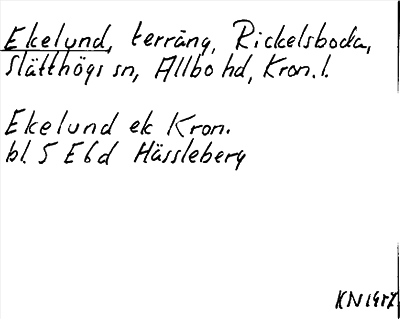 Ekelund, terräng, Rickelsboda,
Slätthögs sn, Allbo hd, Kron. l.
Ekelund ek Kron.
bl. 5 E6d Hässleberg
KN